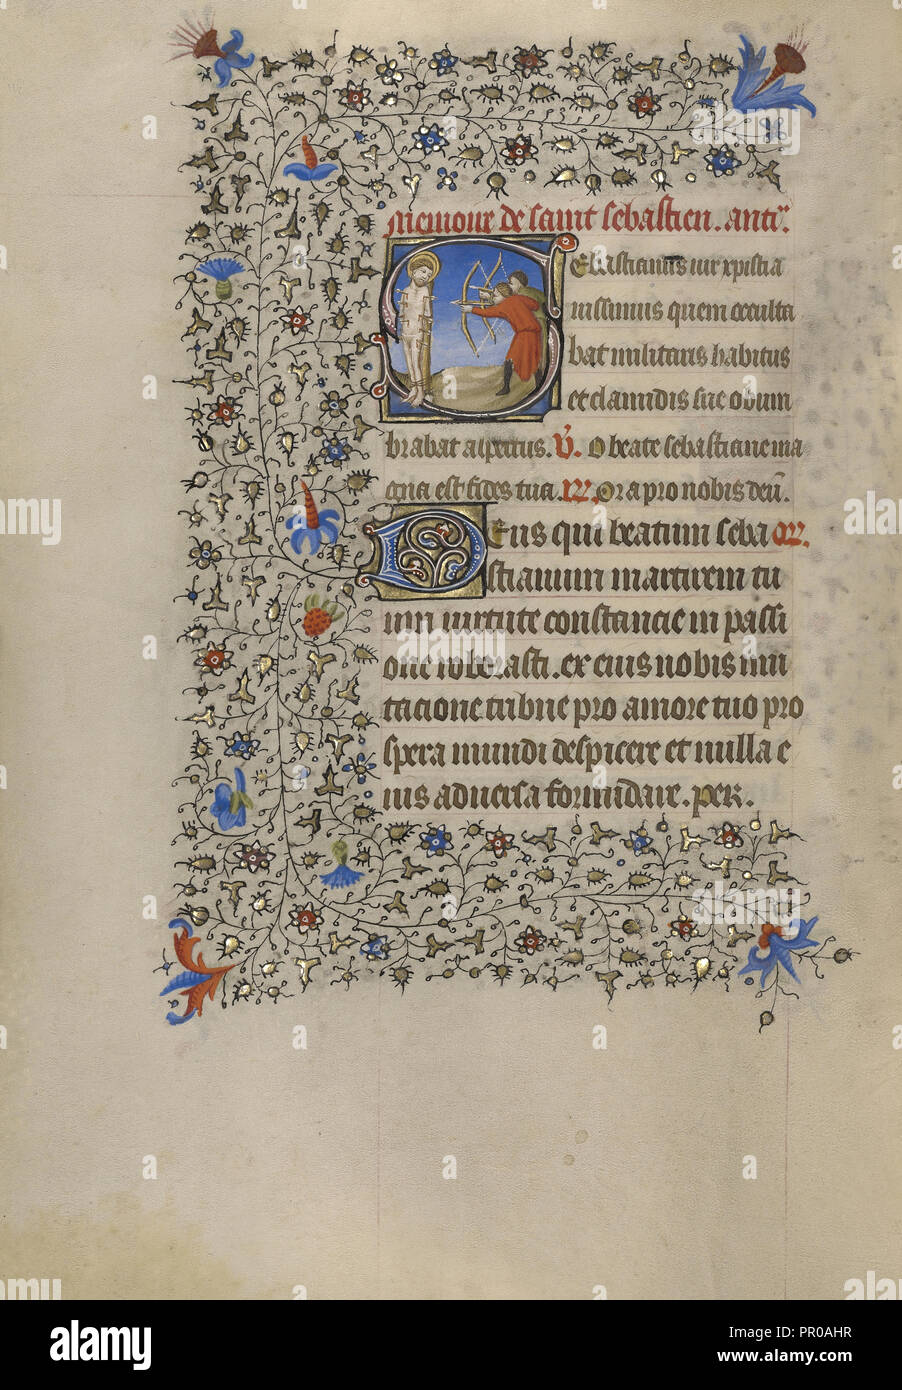 Memoire de saint sebastien. anti.
Sebastianus vir xpistia
nissimus quem occulta
bat militaris habitus
et clamidis sue obum
brabat aspectus. V. O beate sebastiane ma
gna est fides tua. R. Ora pro nobis deū.
Deus qui beatum seba Or.
stianum martirem tu
um virtute constancie in passi
one roborasti. ex eius nobis imi
tacione tribue pro amore tuo pro
spera mundi despicere et nulla e
ius aduersa formidare. per.
alamy
Image ID: PR0AHR
www.alamy.com